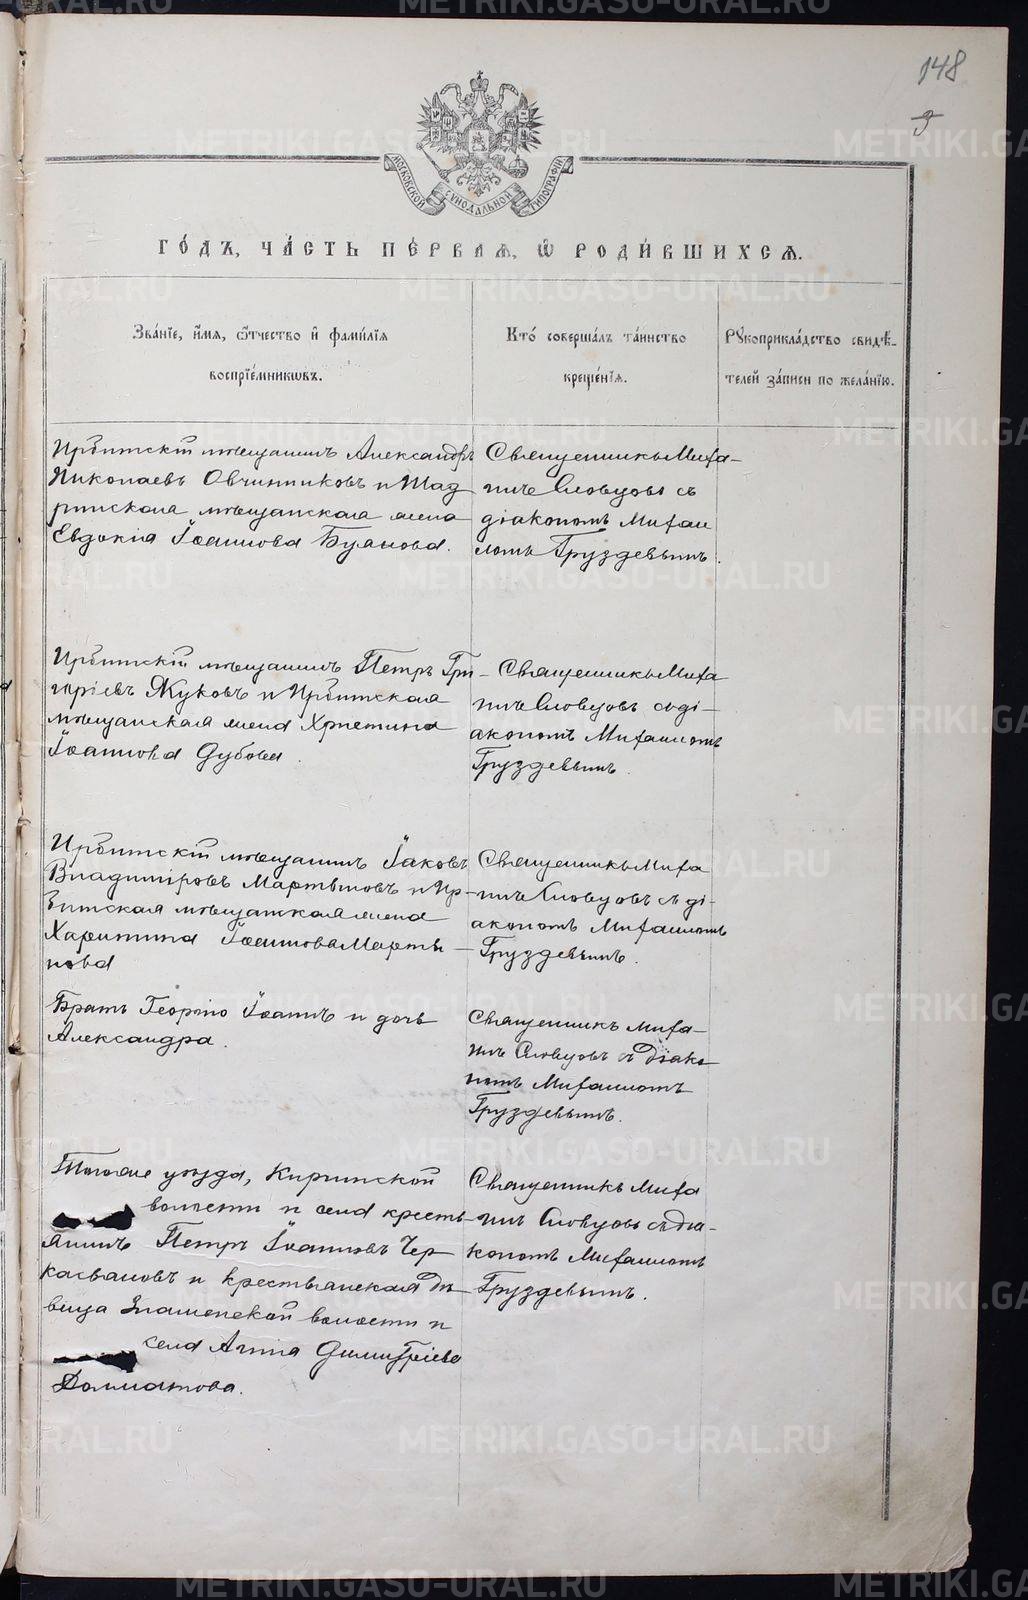 148
МОСКОВСКОЙ СѴНОДАЛЬНОЙ ТИПОГРАФІИ
ГО́ДЪ, ЧА́СТЬ ПЕ́РВАЯ, Ѽ РОДИ́ВШИХСЯ.
Зва́нїе, и҆́мя, ѻ҆́тчество и҆ фами́лїя
воспрїе́мникѡвъ.
Кто̀ соверша́лъ та́инство
креще́нїя.
Рꙋкоприкла́дство свидѣ́-
телей за́писи по жела́нїю.
Ирбитскій мѣщанинъ Александръ
Николаевъ Овчинниковъ и Шад
ринская мѣщанская жена
Евдокія Іоаннова Буянова.
Священникъ Миха-
илъ Словцовъ съ
діакономъ Михаи
ломъ Груздевымъ.
Ирбитскій мѣщанинъ Петръ Гри
горіевъ Жуковъ и Ирбитская
мѣщанская жена Христина
Іоаннова Дубова.
Священникъ Миха
илъ Словцовъ съ ді-
акономъ Михаиломъ
Груздевымъ.
Ирбитскій мѣщанинъ Іаковъ
Владиміровъ Мартыновъ и Ир-
битская мѣщанская жена
Харитина Іоаннова Марты-
нова
Священникъ Миха
илъ Словцовъ съ ді-
акономъ Михаиломъ
Груздевымъ.
Братъ Георгію Іоаннъ и дочь
Александра.
Священникъ Миха-
илъ Словцовъ съ діако
номъ Михаиломъ
Груздевымъ.
Тогоже уѣзда, Киргинской
волости и села кресть-
янинъ Петръ Іоанновъ Чер
касвановъ и крестьянская дѣ-
вица Знаменской волости и
села Анна Димитріева
Долматова.
Священникъ Миха
илъ Словцовъ съ діа-
кономъ Михаиломъ
Груздевымъ.
METRIKI.GASO-URAL.RU